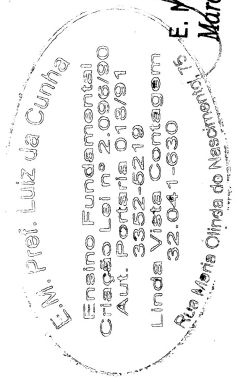 E.M. Pref. Luiz da Cunha
Ensino Fundamental
Criação Lei nº 2.096/90
Aut. Portaria 013/91
3352-5219
Linda Vista Contagem
32.041-630
Rua Maria Olinda do Nascimento, 75
E. M
Marc